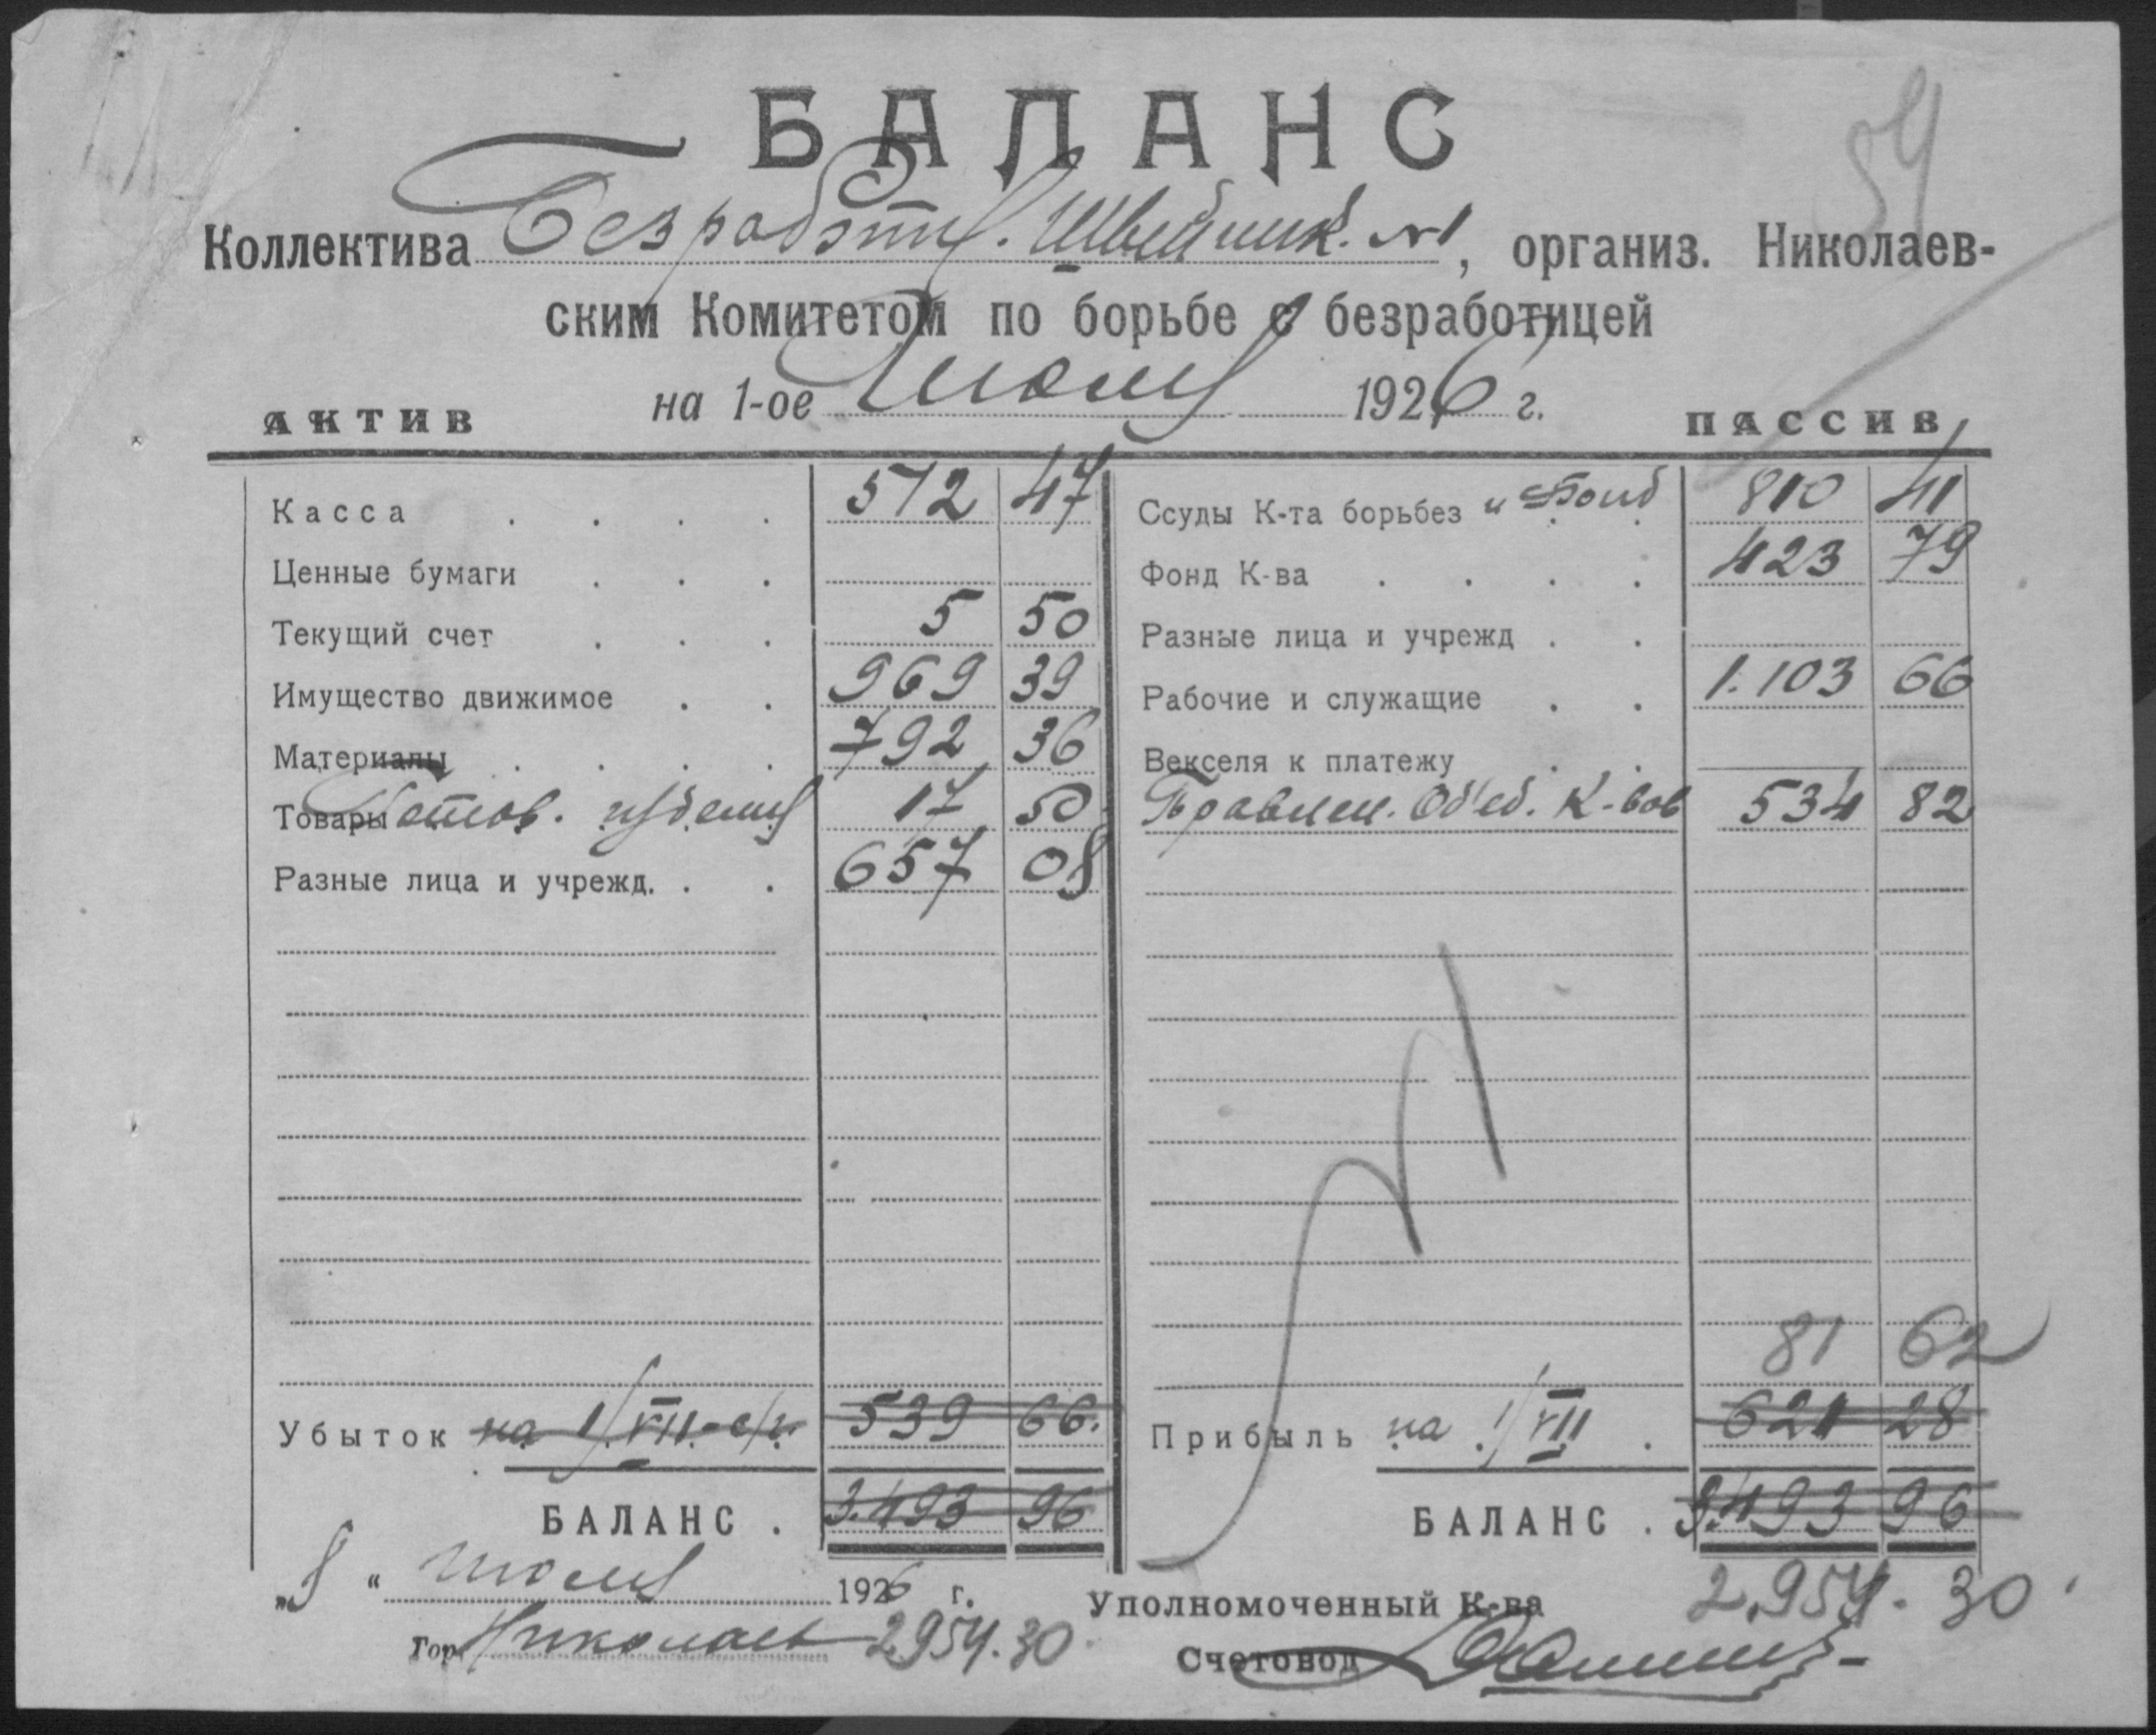 59
БАЛАНС
Коллектива Безработн. Швейник. №1, организ. Николаев-
ским Комитетом по борьбе с безработицей
на 1-ое Июля 1926 г.
АКТИВ ПАССИВ
Касса . . . . 512 47 Ссуды К-та борьбез и Бонд 810 41
Ценные бумаги . . . Фонд К-ва . . . . 423 79
Текущий счет . . . 5 50 Разные лица и учрежд . .
Имущество движимое . . 969 39 Рабочие и служащие . . 1.103 66
Материалы . . . . 792 36 Векселя к платежу . .
Товары Готов. изделия 17 50 Правлен. Об'ед. К-вов 534 82
Разные лица и учрежд. . . 657 08
81 62
Убыток на 1/VII-с/г. 539 66. Прибыль на 1/VII . 621 28
БАЛАНС . 3.493 96 БАЛАНС . 3.493 96
„8“ июля 1926 г. Уполномоченный К-ва 2.954. 30
гор. Николаев 2954.30 Счетовод